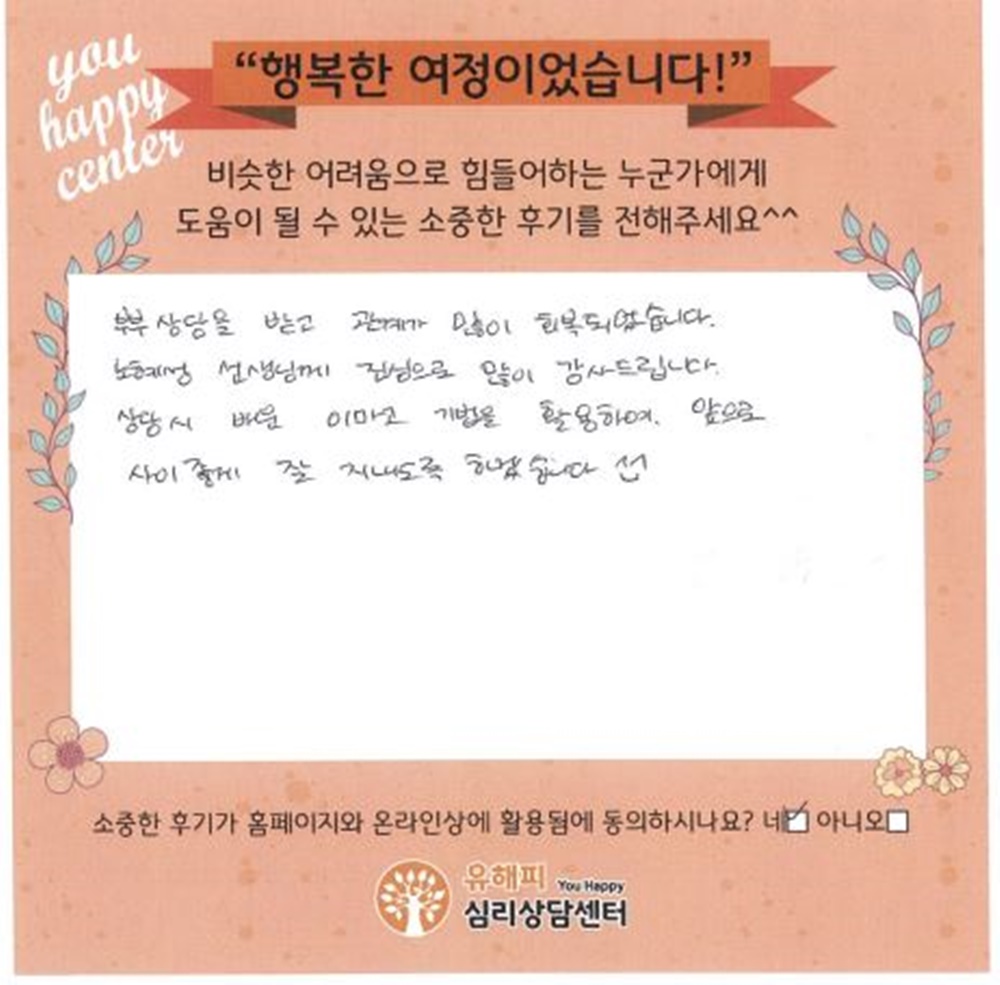 you
happy
center
“행복한 여정이었습니다!”
비슷한 어려움으로 힘들어하는 누군가에게
도움이 될 수 있는 소중한 후기를 전해주세요^^
부부상담을 받고 관계가 많이 회복되었습니다.
노혜정 선생님께 진심으로 많이 감사드립니다.
상담시 배운 이마고 기법을 활용하여. 앞으로
사이좋게 잘 지내도록 하겠습니다
소중한 후기가 홈페이지와 온라인상에 활용됨에 동의하시나요? 네 아니오
유해피 You Happy
심리상담센터